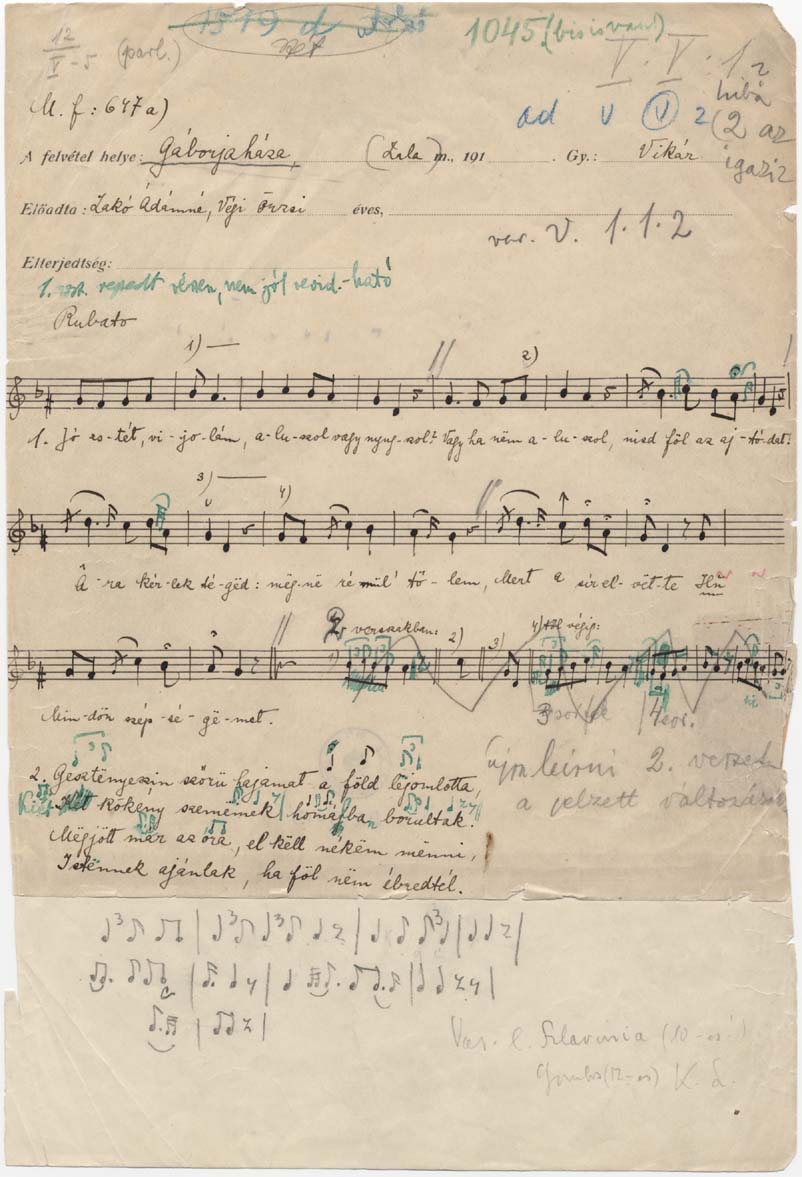 12
V - 5 (parl.)
1045 (bis
V. V. 1 2
hibá
(2 az
igazi
M. f: 647a)
ad V V 2
A felvétel helye: Gáborjaháza, (Zala) m., 191 . Gy.: Vikár
Előadta: Zakó Ádámné, Végi Örzsi éves,
var. V. 1. 1. 2
Elterjedtség:
1. repedt nem jól revid.-ható
Rubato
1) 2)
1. Jó es-tét, vi-jo-lám, a-lu-szol vagy nyug-szol? Vagy ha nëm a-lu-szol, nisd föl az aj-tó-dat!
3) 4)
Á-ra kér-lek té-gëd: mëg-në tő-lem, Mert a sír el-vët-te
2. versszakban: 2) 3) 4) végig:
Min-dön szép-sé-gë-met.
4 sor.
2. Gesztënyeszin szőrü hajamat a föld lejomlotta,
Két kökény szemëmek homájban borultak.
Mëgjött már az óra, el këll nékëm mënni,
Istënnek ajánlak, ha föl nëm ébredtél.
újra leírni 2. verset
a jelzett
Var. l. Szlavonia (10-es!)
Gombos (12-es) K. L.